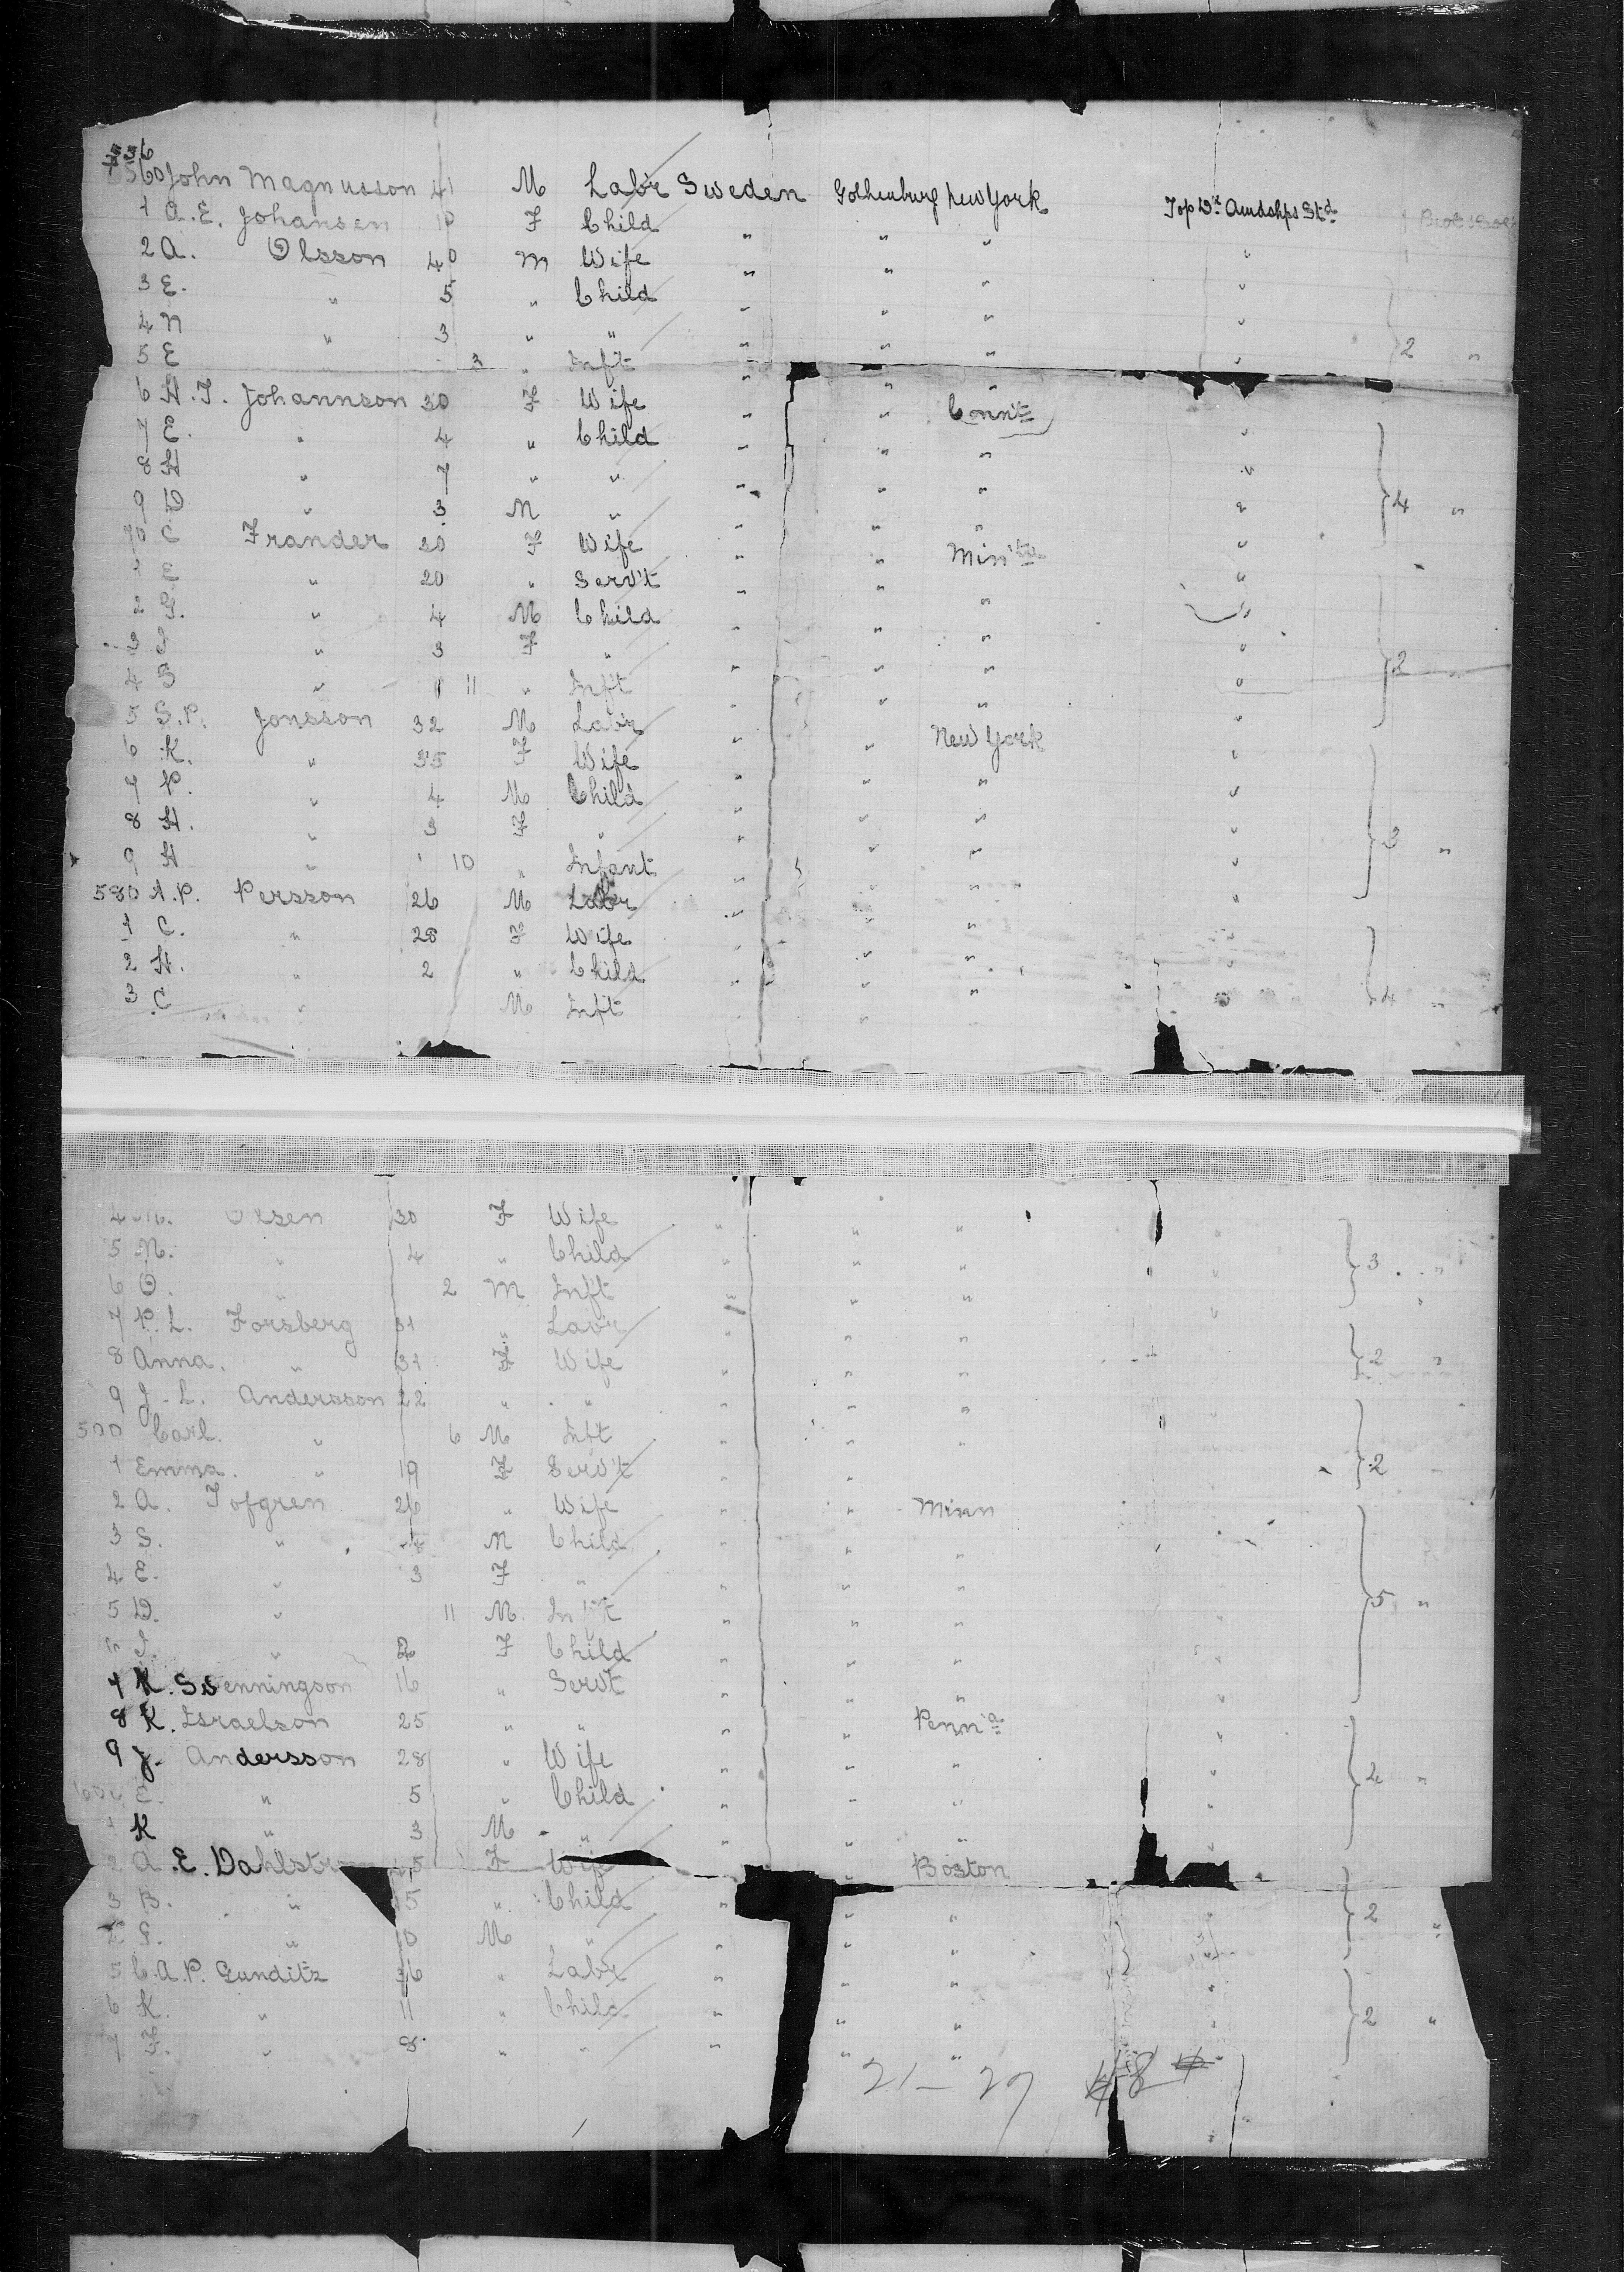 560 John Magnusson 41 M Lab'r Sweden Gothenburg New York Top Dk Amdshps Stb
1 A. E. Johansen 10 F Child " " " "
2 A. Olsson 40 M Wife " " " "
3 E. " 5 " Child " " " "
4 N " 3 " " " " " "
5 E " 3 " Inft " " " " 2 "
6 H. J. Johannson 30 F Wife " " Conn't "
7 E. " 4 " Child " " " "
8 H " 7 " " " " " "
9 O " 3 M " " " " " 4 "
70 C Frander 30 F Wife " " Min'ta "
1 E " 20 " Serv't " " " "
2 G. " 4 M Child " " " "
3 S " 3 F " " " " "
4 S " 11 " Inft " " " " 2
5 S. P. Jonsson 32 M Lab'r " " New York "
6 K. " 35 F Wife " " " "
7 P. " 4 M Child " " " "
8 H. " 3 F " " " " "
9 H " 10 " Infant " " " " 3 "
580 A. P. Persson 26 M Labr " " " "
1 C. " 28 F Wife " " " "
2 H. " 2 " Child " " " "
3 C " M Inft " " " 4 "
4 M. Olsen 30 F Wife " " "
5 N. " 4 " Child " " " " 3 "
6 O. " 2 M Inft " " " "
7 P. L. Forsberg 31 " Lab'r " " "
8 Anna. " 31 F Wife " " " 2 "
9 J. L. Andersson 22 " " " " "
Carl. " 6 M Inft " " "
1 Emma. " 19 F Serv't " " " 2 "
2 A. Tofgren 26 " Wife " " Minn
3 S. " M Child " " "
4 E. " 3 F " " " "
5 D. " 11 M. Inft " " " 5 "
F Child " " "
7 K. Swenningson 16 " Servt " " " "
8 K. Israelson 25 " " " " Penn'a "
9 J. Andersson 28 " Wife " " " "
600 E. " 5 " Child " " " " 4 "
1 K " 3 M " " " " "
2 A. E. Dahlstrom F Wife " Boston
3 B. " 5 " Child " " " 2 "
S. " M " " " " "
5 C. A. P. Gunditz 36 " Labr " " " "
6 K. " 11 " Child " " " " 2 "
7 F. " 8 " " " " "
21 - 27